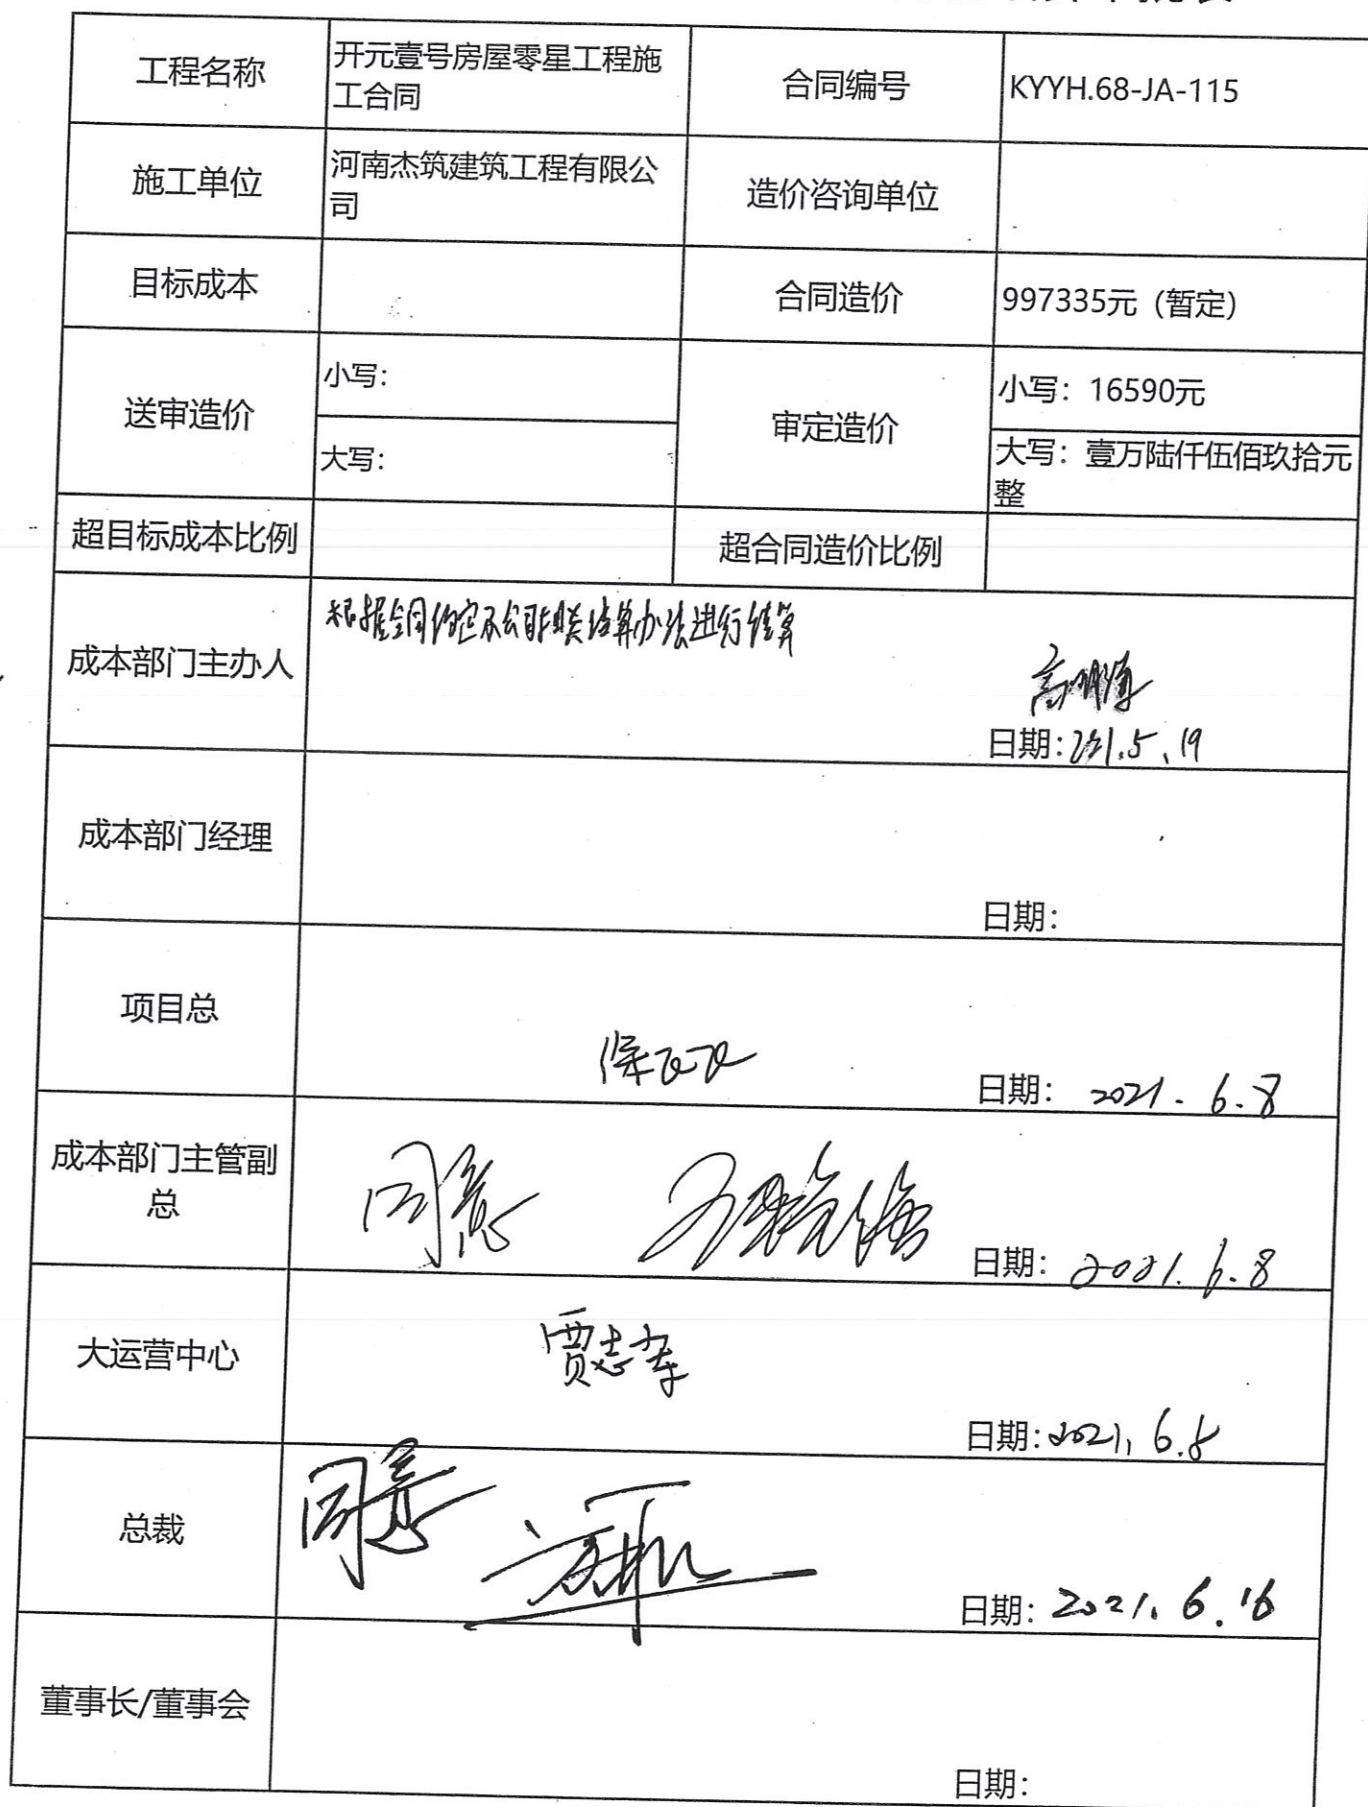 工程名称
开元壹号房屋零星工程施
工合同
合同编号
KYYH.68-JA-115
施工单位
河南杰筑建筑工程有限公
司
造价咨询单位
目标成本
合同造价
997335元（暂定）
送审造价
小写：
大写：
审定造价
小写：16590元
大写：壹万陆仟伍佰玖拾元
整
超目标成本比例
超合同造价比例
成本部门主办人
根据合同约定及公司相关结算办法进行结算
日期：2021.5.19
成本部门经理
日期：
项目总
日期：2021.6.8
成本部门主管副
总
同意
日期：2021.6.8
大运营中心
日期：2021.6.8
总裁
同意
日期：2021.6.16
董事长/董事会
日期：